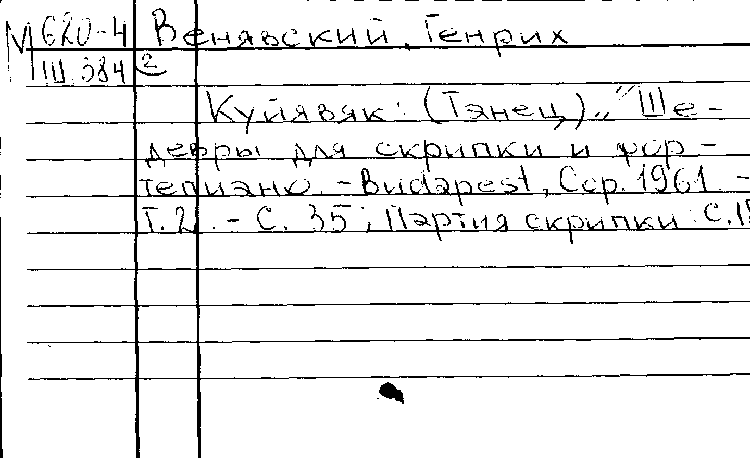 М620-4 Венявский, Генрих
Ш 384 2
Куйявяк: (Танец),, "Ше-
девры для скрипки и фор-
тепиано. - Budapest, Cop. 1961. -
Т.2. - С. 35; Партия скрипки: С.